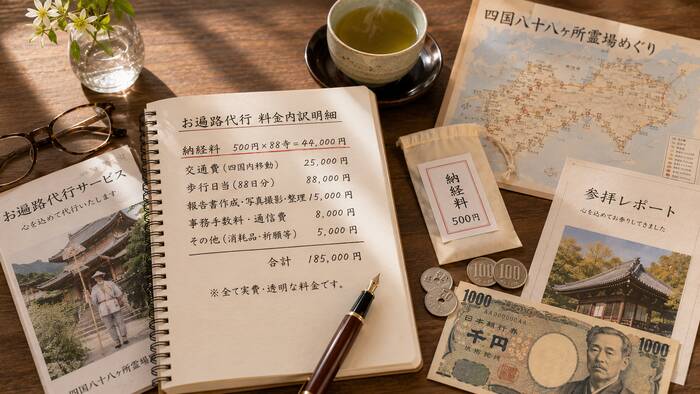 お遍路代行 料金内訳明細
納経料 500円×88寺=44,000円
交通費(四国内移動) 25,000円
歩行日当(88日分) 88,000円
報告書作成・写真撮影・整理 15,000円
事務手数料・通信費 8,000円
その他(消耗品・祈願等) 5,000円
合計 185,000円
※全て実費・透明な料金です。
お遍路代行サービス
心を込めて代行いたします
四国八十八ヶ所霊場
四国八十八ヶ所霊場めぐり
納経料
500円
参拝レポート
心を込めてお参りしてきました
100
100
1000
日本銀行券
千円
1000